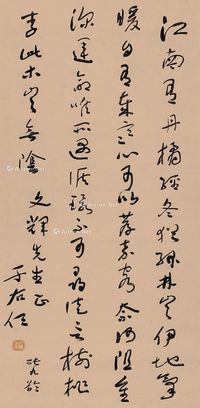 江南有丹橘經冬猶綠林豈伊地氣
暖自有歲寒心可以薦嘉客奈何阻重
深運命唯所遇循環不可尋徒言樹桃
李此木豈無陰 文輝先生正
于右任